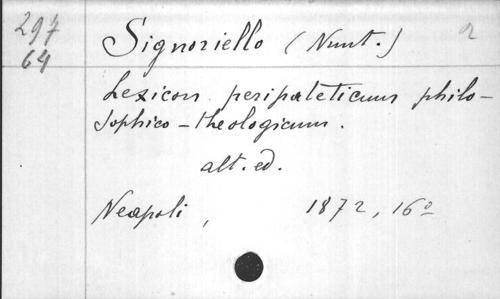 297
64
Signoriello (Nunt.)
Lexicon peripateticum philo-
sophico-theologicum.
alt. ed.
Neapoli, 1872, 16°